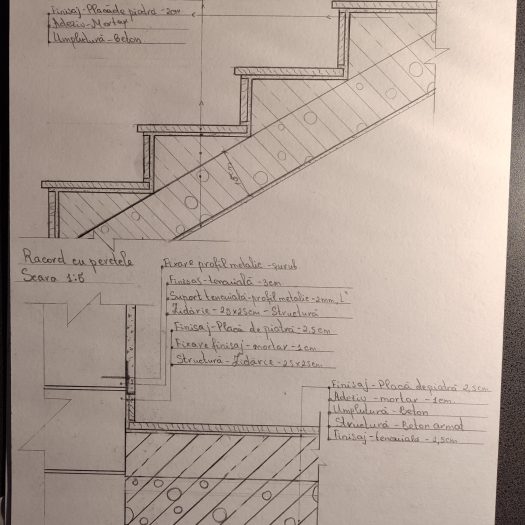 Finisaj - Placă de piatră - 2cm
Adeziv - Mortar
Umplutură - Beton
Racord cu peretele
Scara 1:5
Fixare profil metalic - șurub
Finisaj - tencuială - 3cm
Suport tencuială - profil metalic - 2mm, "L"
Zidărie - 25x25cm - Structură
Finisaj - Placă de piatră - 2,5cm
Fixare finisaj - mortar - 1cm
Structură - Zidărie - 25x25cm
Finisaj - Placă de piatră 2,5cm
Adeziv - mortar - 1cm
Umplutură - Beton
Structură - Beton armat
Finisaj - tencuială - 1,5cm